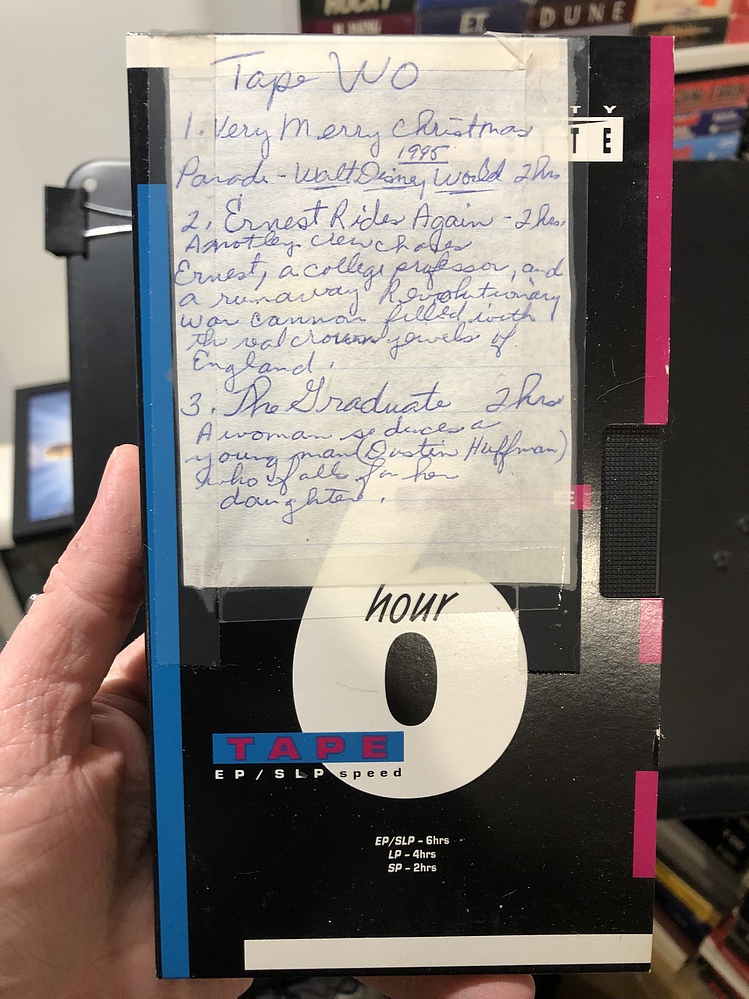 ROCKY
ET
DUNE
Tape VVO
TY
TE
1. Very Merry Christmas
1995
Parade - Walt Disney World 2 hrs
2. Ernest Rides Again - 2 hrs.
A motley crew chases
Ernest, a college professor, and
a runaway Revolutionary
war cannon filled with
the real crown jewels of
England.
3. The Graduate 2 hrs
A woman seduces a
young man (Dustin Huffman)
who falls for her
daughter.
E
6
hour
TAPE
EP/SLP speed
EP/SLP - 6hrs
LP - 4hrs
SP - 2hrs